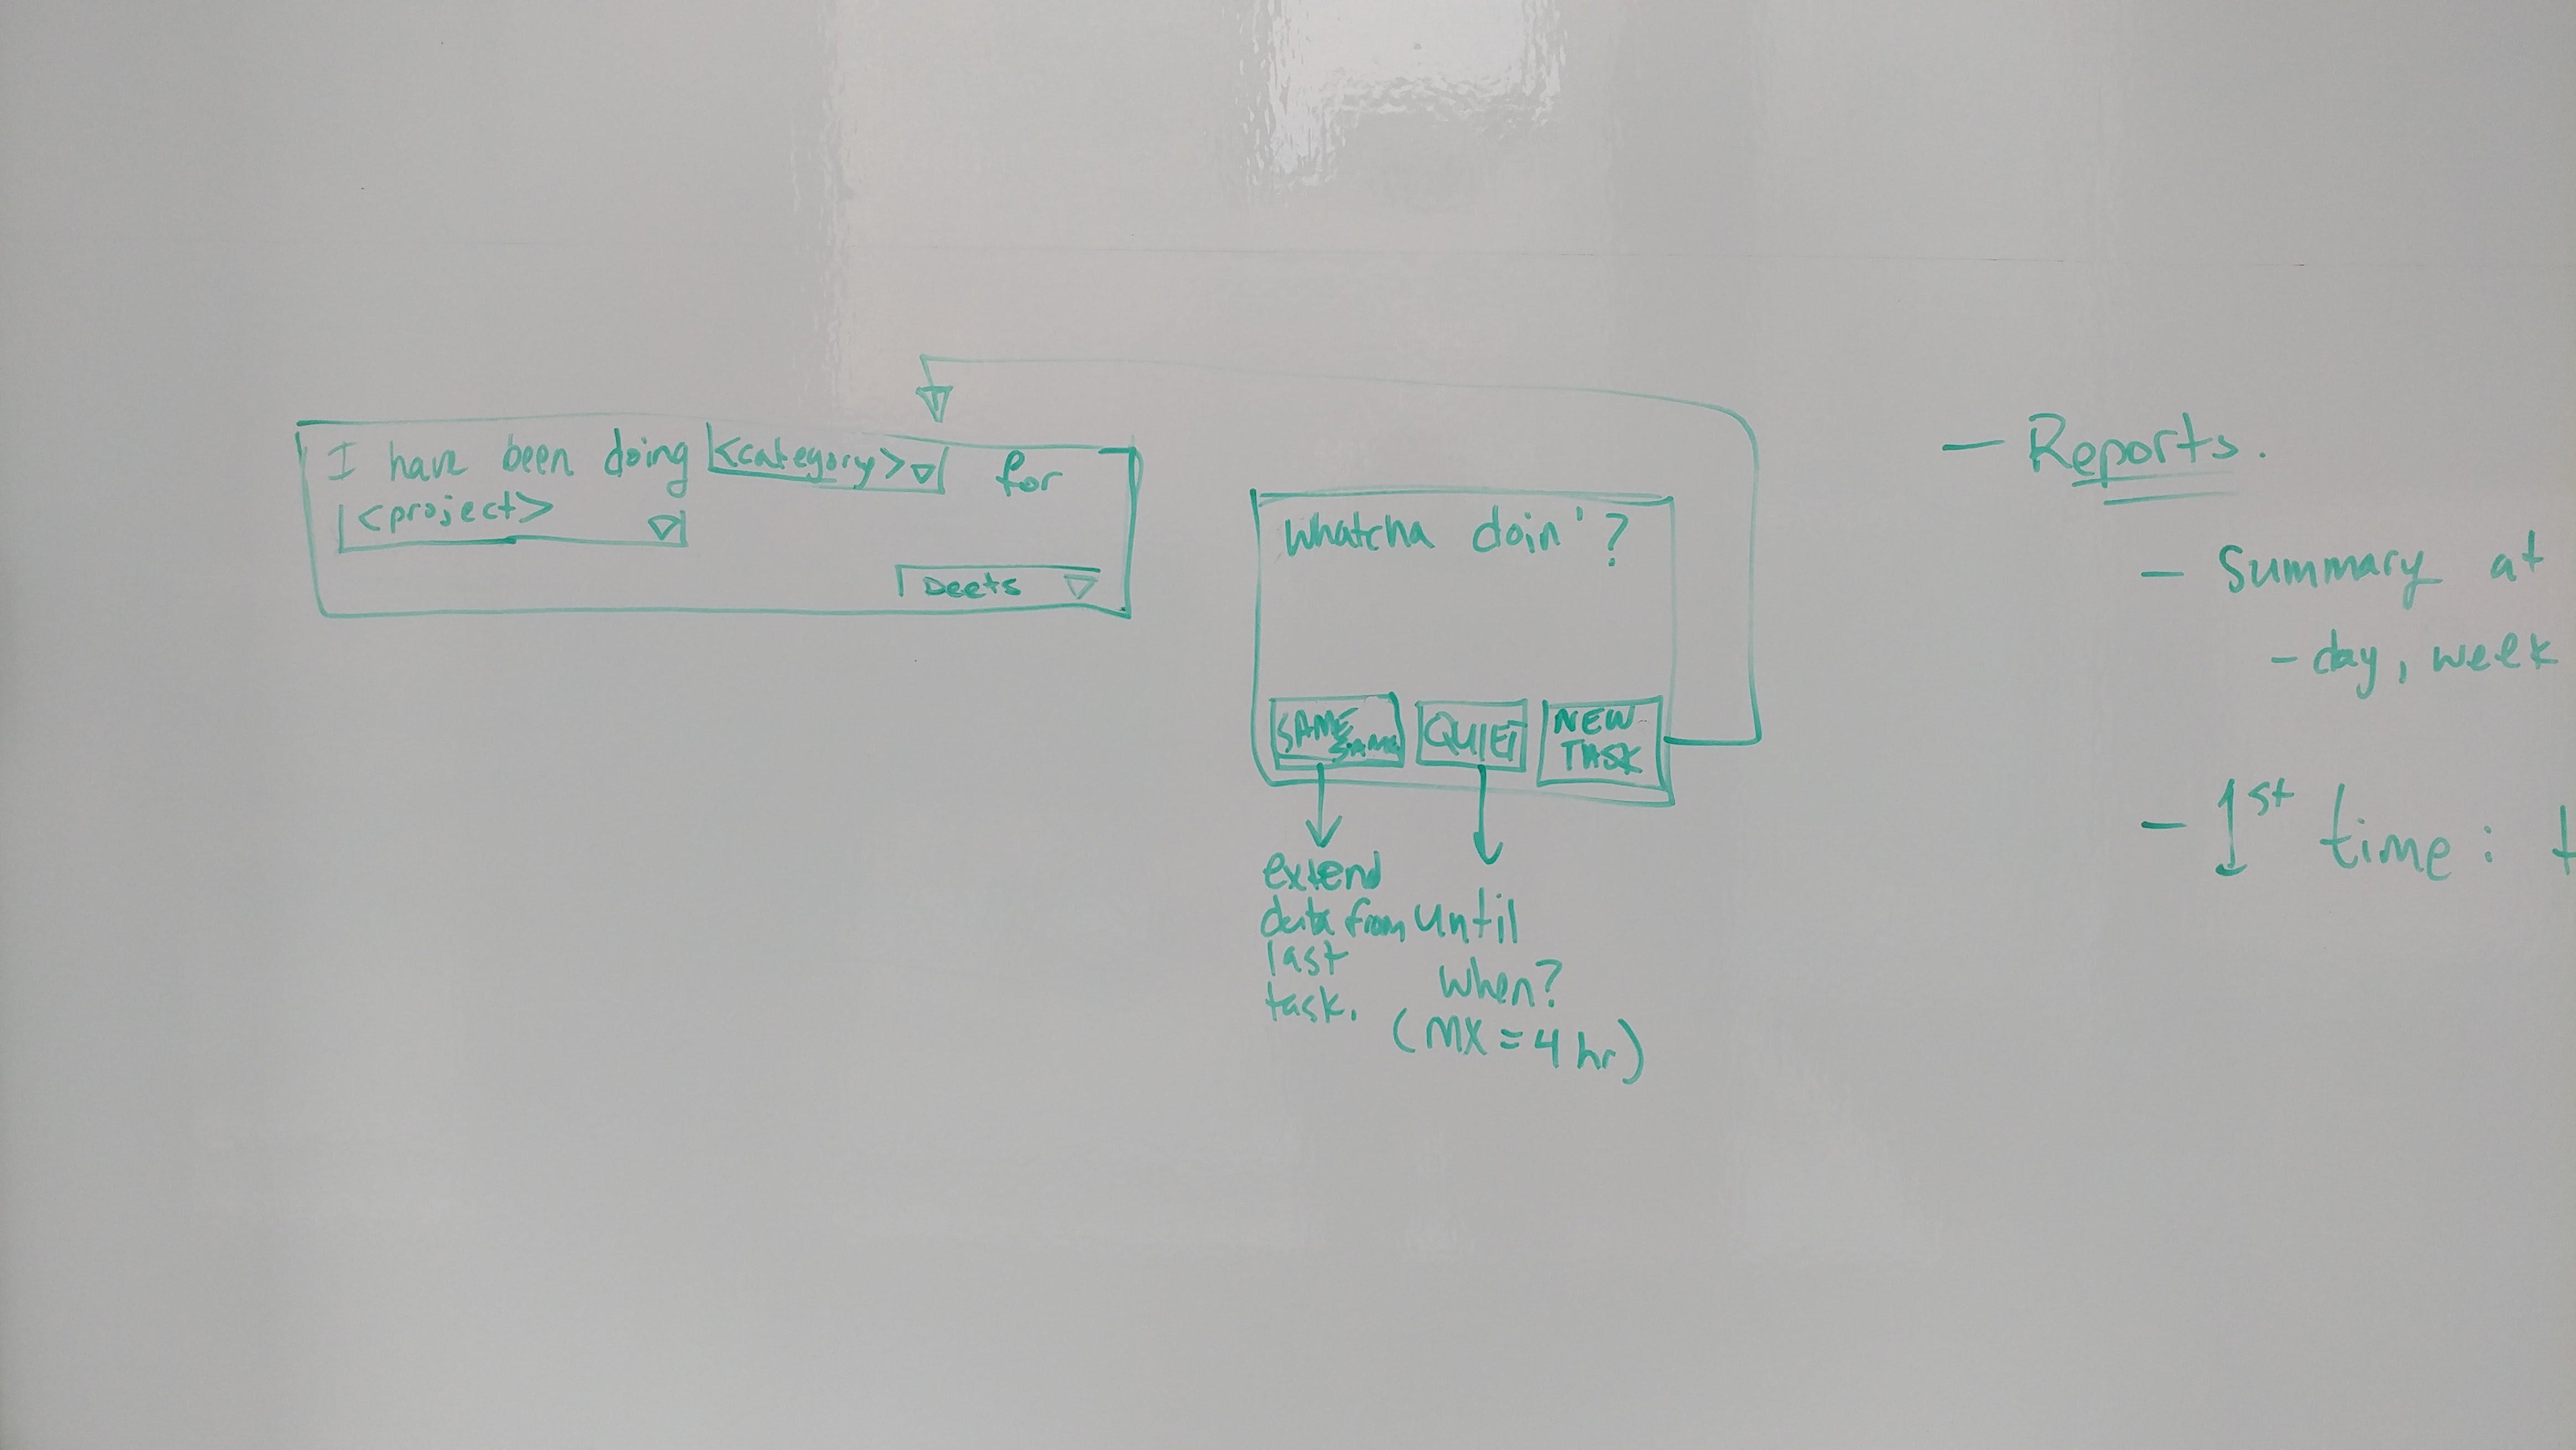 I have been doing <category> for
<project>
Deets
Whatcha doin'?
SAME SAME
QUIET
NEW TASK
extend
data from
last
task.
until
when?
(MX = 4 hr)
— Reports.
— Summary at
- day, week
— 1st time: